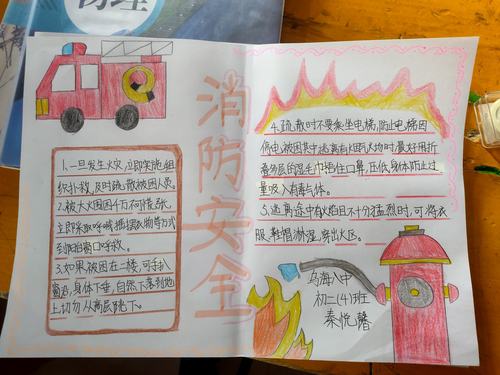 物理
消防安全
1、一旦发生火灾,立即实施组
织扑救,及时疏散被困人员。
2、被大火围困千万何惊慌,
立即采取呼喊摇摆衣物等方式
到临街窗口呼救。
3、如果,被困在二楼,可手扒
窗沿,身体下垂,自然下落到地
上切勿从高层跳下。
4、疏散时不要乘坐电梯,防止电梯因
停电,被困其中逃离有烟雾
最好用折
叠多层的湿毛巾捂住口鼻,压低身体防止过
量吸入有毒气体。
5、逃离途中有火焰且不十分猛烈时,可将衣
服,鞋帽淋湿,穿出火区。
乌海八中
初二(4)班
秦悦馨